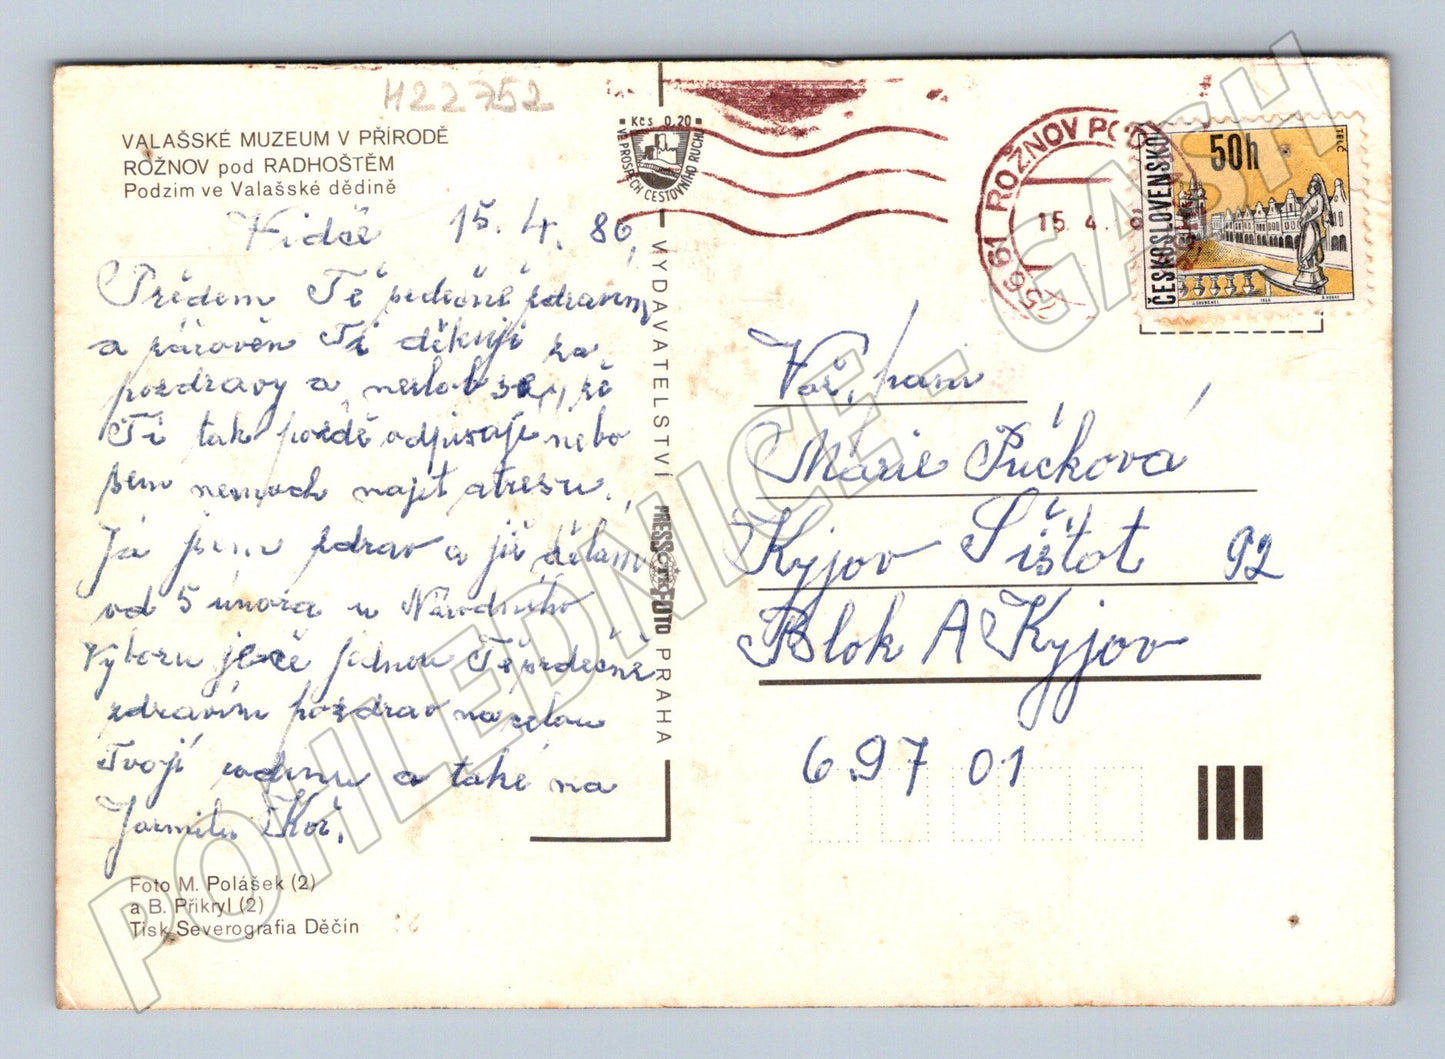 H22752
VALAŠSKÉ MUZEUM V PŘÍRODĚ
ROŽNOV pod RADHOŠTĚM
Podzim ve Valašské dědině
Vidče 15. 4. 80,
Předem Tě srdečně zdravím
a zároveň Ti děkuji za
pozdravy a nezlob se, že
Ti tak pozdě odpisuji nebo
sem nemoch najít atresu.
Já jsem zdrav a již dělám
od 5 února u Národního
Výboru ješče jednou Tě srdečně
zdravím pozdrav na celou
Tvojí rodinu a také na
Jarmilu Koř.
Foto M. Polášek (2)
a B. Přikryl (2)
Tisk Severografia Děčín
Kčs 0,20
VE PROSPĚCH CESTOVNÍHO RUCHU
VYDAVATELSTVÍ PRESSFOTO PRAHA
ČTK
75661 ROŽNOV POD
15. 4. 8
ČESKOSLOVENSKO
50h
TELČ
Važ, paní
Márie Púčková
Kyjov Sištot 92
Blok A Kyjov
697 01
POHLEDNICE - GASH